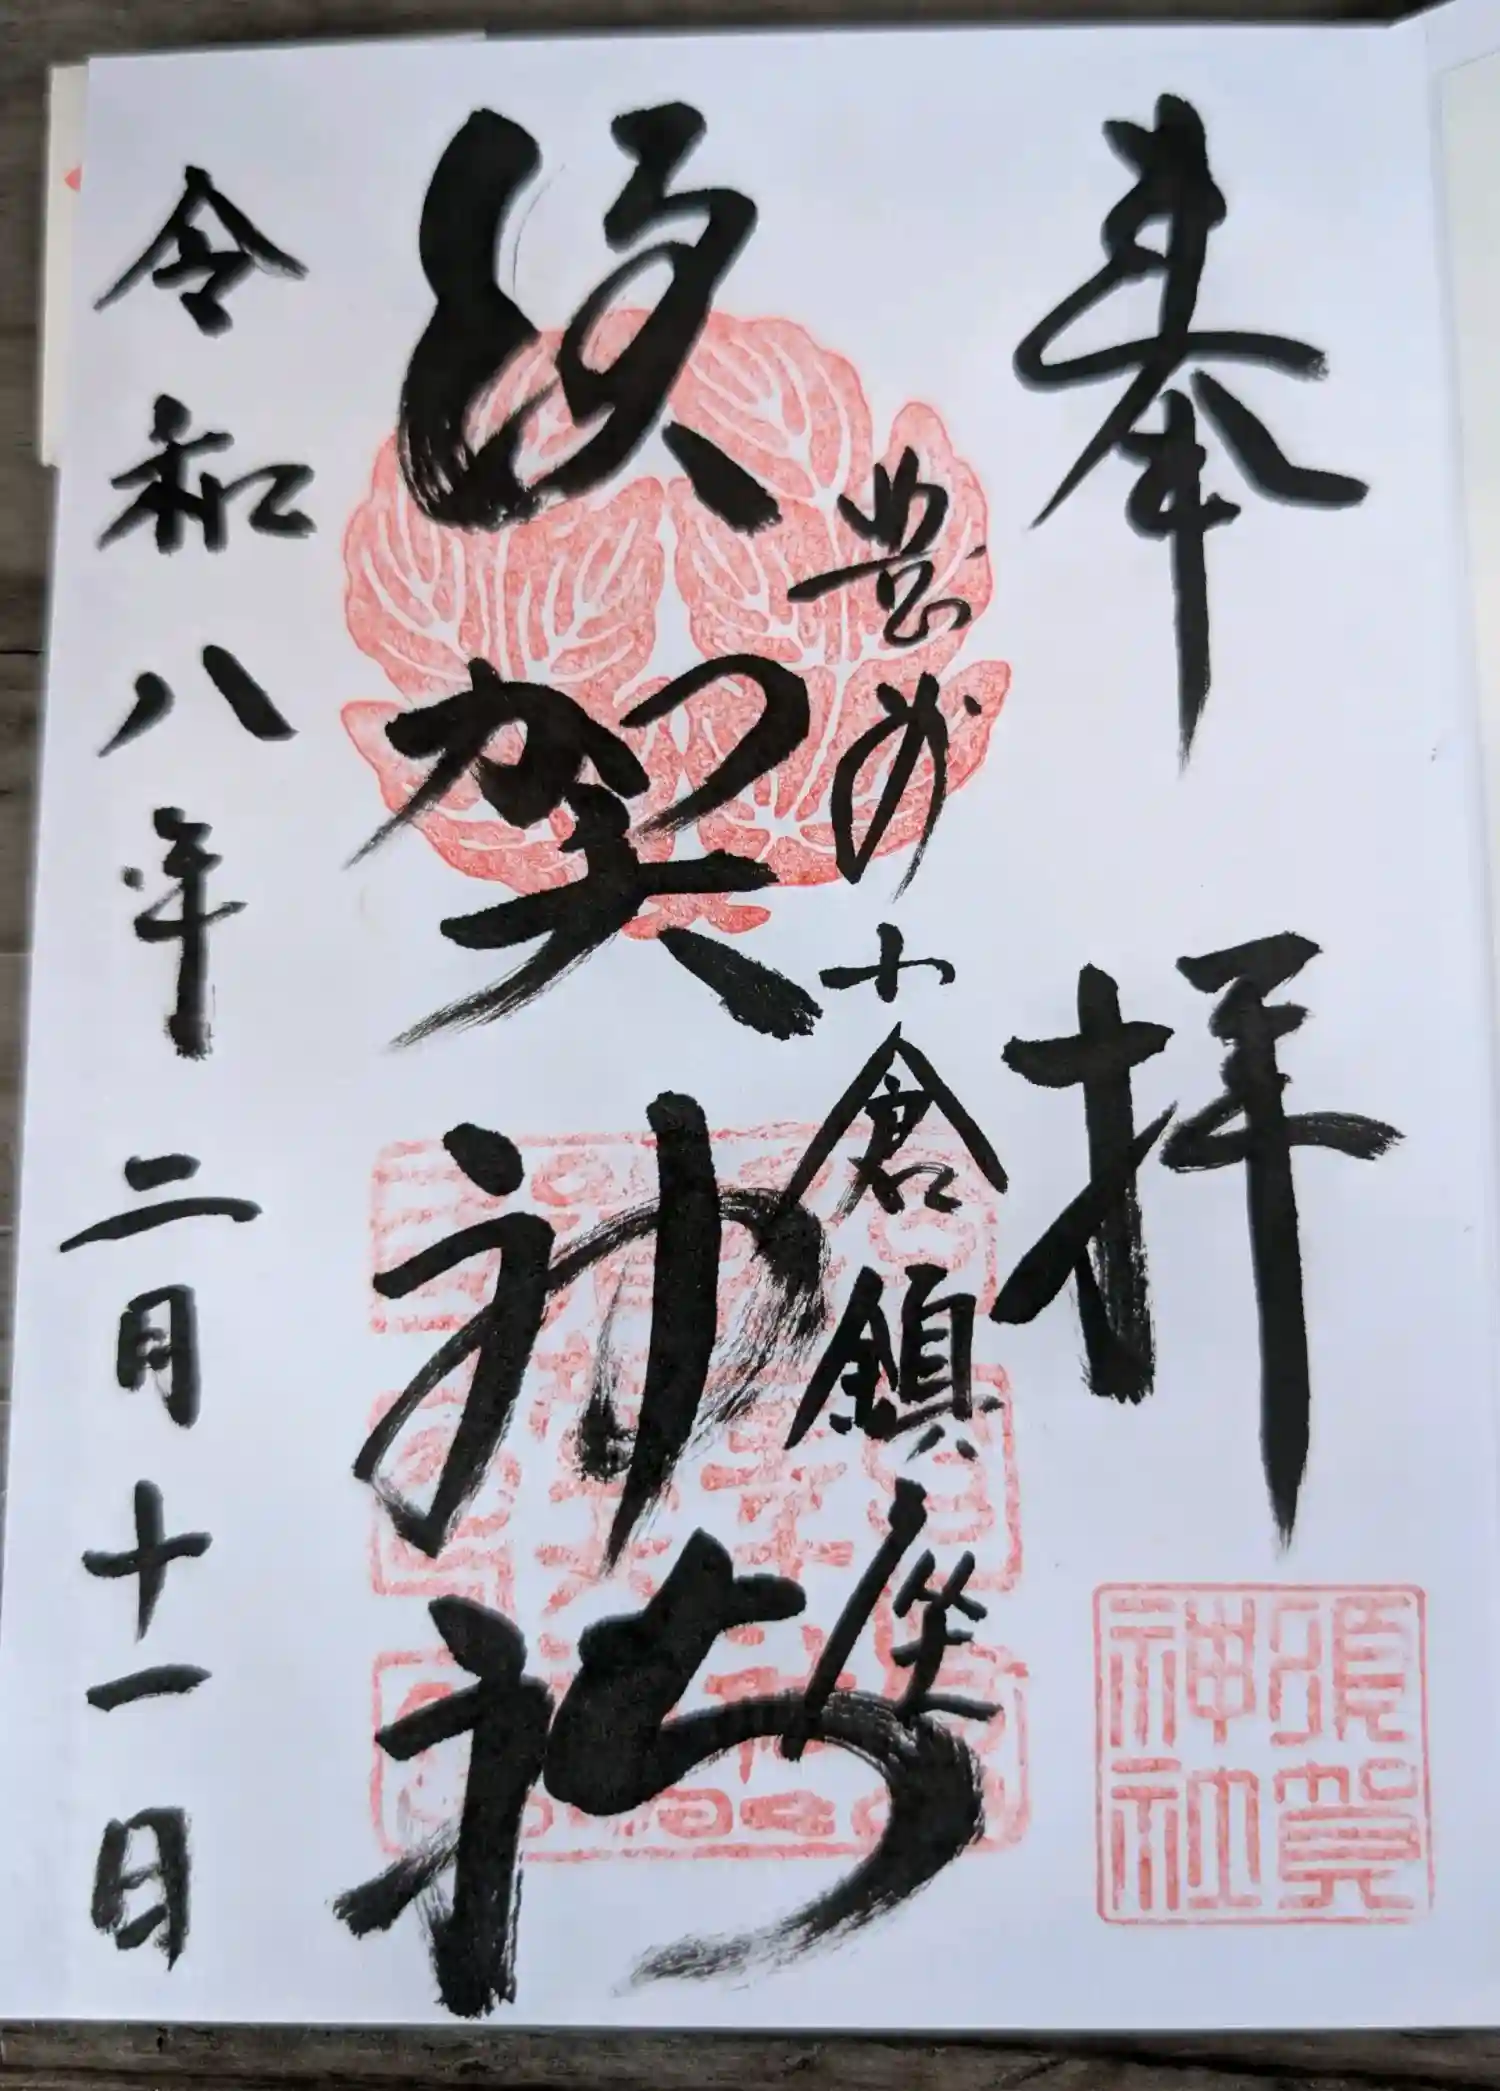 奉拝
豊州小倉鎮座
須賀神社
令和八年二月十一日
須賀
神社